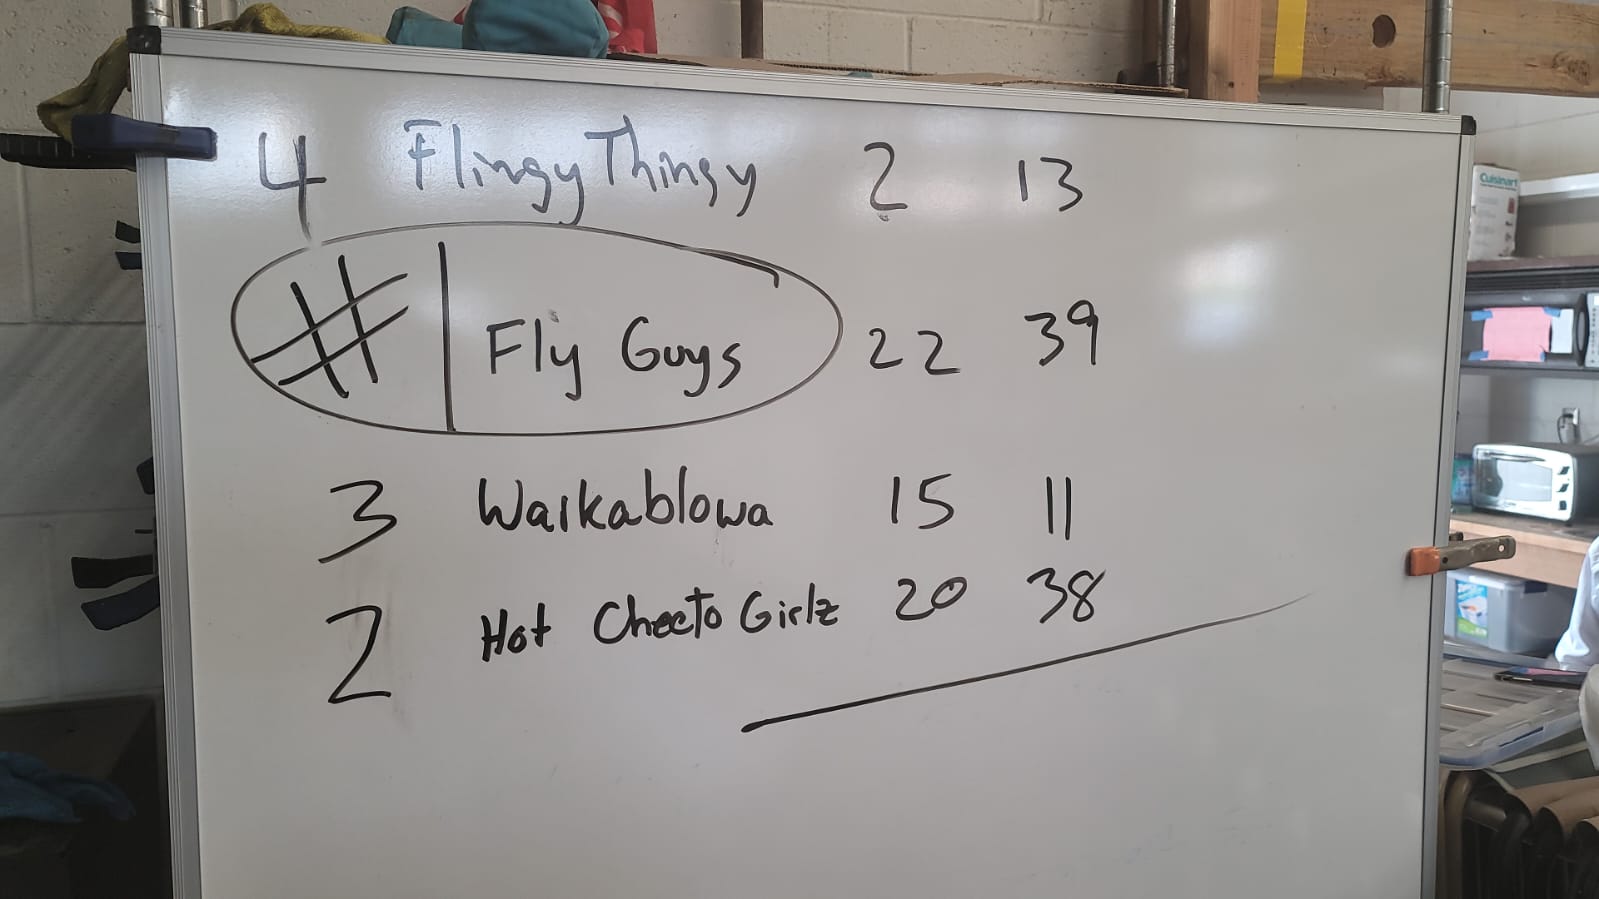 4 Flingy Thingy 2 13
#1 Fly Guys 22 39
3 Waikablowa 15 11
2 Hot Cheeto Girlz 20 38
Cuisinart